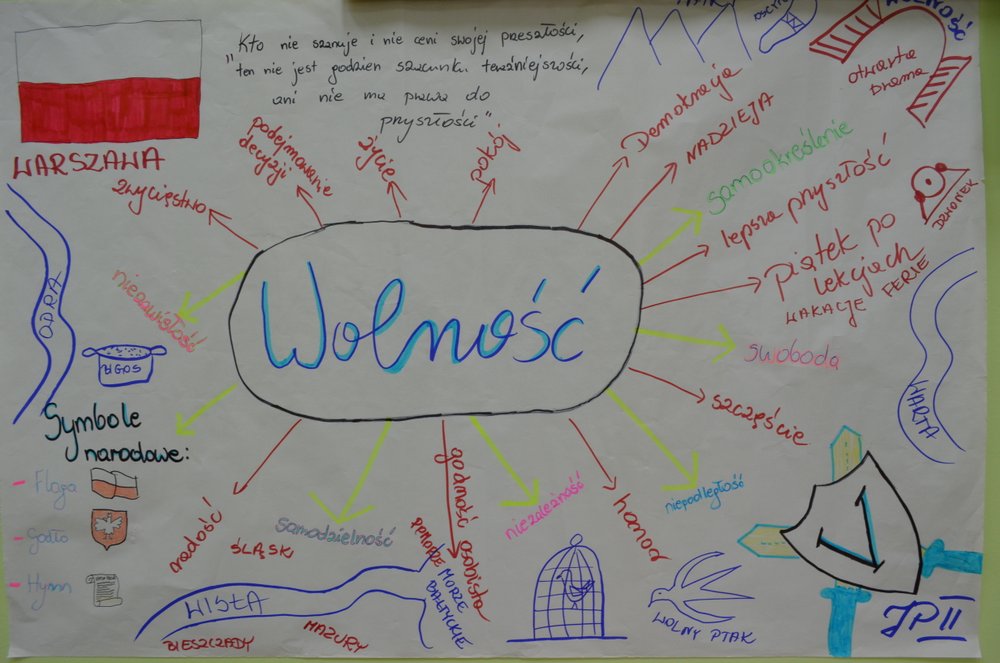 "Kto nie szanuje i nie ceni swojej przeszłości,
ten nie jest godzien szacunku teraźniejszości,
ani nie ma prawa do
przyszłości"
WOLNOŚĆ
otwarta
brama
WARSZAWA
zwycięstwo
podejmowanie
decyzji
życie
pokój
Demokracja
NADZIEJA
samookreślenie
lepsza przyszłość
DZWONEK
piątek po
lekcjach
WAKACJE FERIE
ODRA
niezawisłość
BIGOS
Wolność
swoboda
szczęście
WARTA
Symbole
narodowe:
- Flaga
- Godło
- Hymn
radość
ŚLĄSKI
samodzielność
godność osobista
niezależność
honor
niepodległość
V
WISŁA
BIESZCZADY
MAZURY
POMORZE
MORZE
BAŁTYCKIE
WOLNY PTAK
JP II